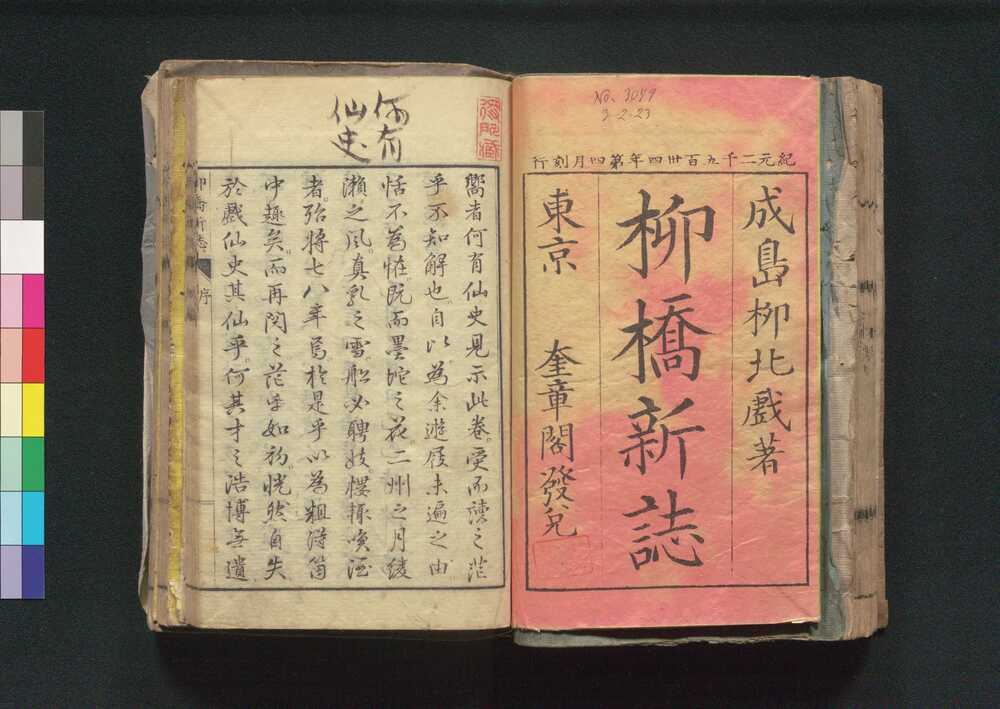 No. 3079
3-2-23
紀元二千五百卅四年第四月刻行
成島柳北戲著
柳橋新誌
東京 奎章閣發兌
何有
仙史
嚮者何有仙史見示此卷。受而讀之茫
乎不知解也。自以為余遊屐未遍之由
恬不為恠。既而墨陀之花二州之月綾
瀨之風。真乳之雪。船必聘妓。樓輙喚酒
者。殆將七八年焉於是乎以為粗得箇
中趣矣。而再閱之茫乎如初。恍然自失
於戲仙史其仙乎。何其才之浩博無遺
柳橋新志 序